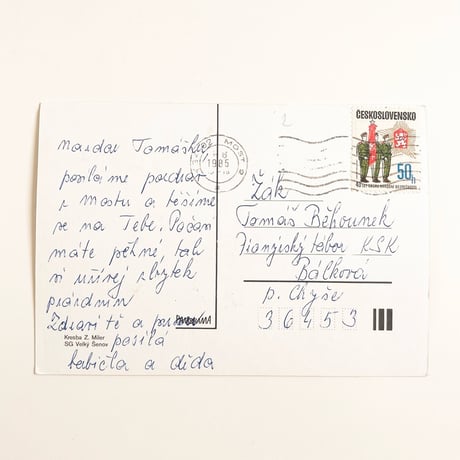 Nazdar Tomášku
posíláme pozdrav
z Mostu a těšíme
se na Tebe. Počasí
máte pěkné, tak
si užívej zbytek
prázdnin
Zdraví tě a pusu
posílá
babička a děda
Kresba Z. Miler
SG Velký Šenov
MOST
1985
ČESKOSLOVENSKO
50h
Žák
Tomáš Běhounek
Pionýrský tábor KSK
Bálková
p. Chyše
36453